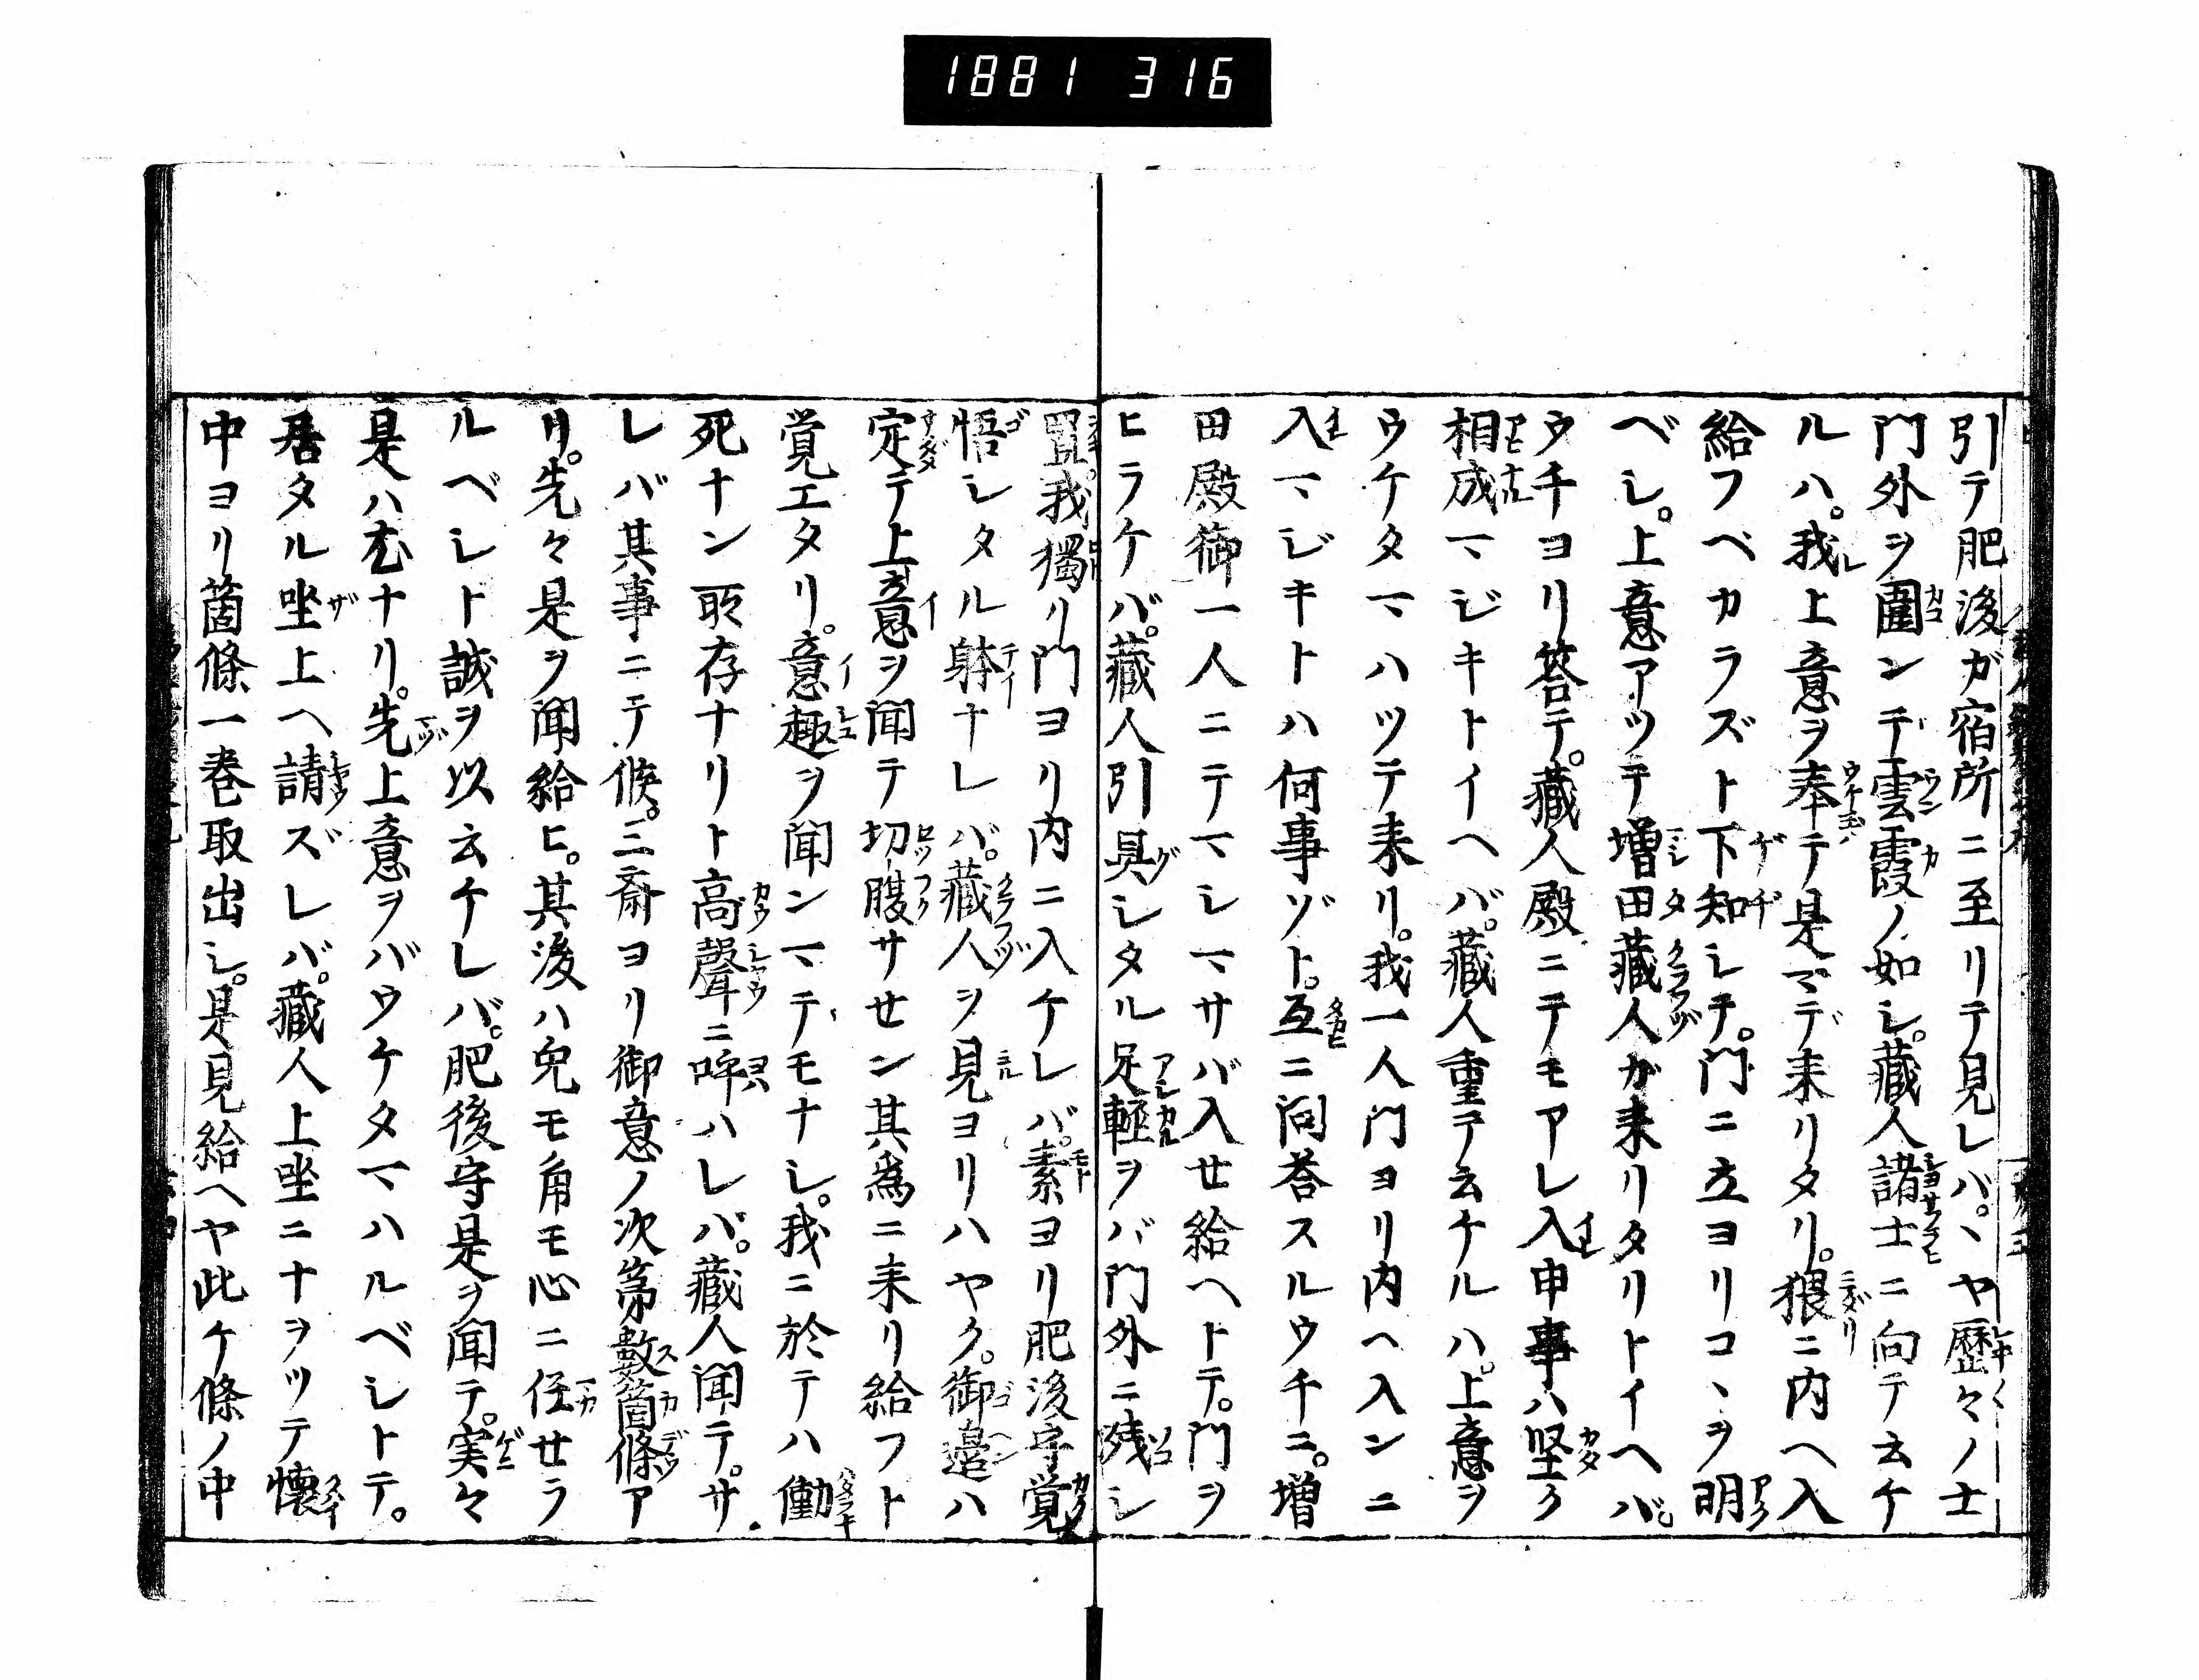 1881 316
引テ肥後ガ宿所ニ至リテ見レバ。ヽヤ歴々ノ士
門外ヲ圍ンデ雲霞ノ如シ。藏人諸士ニ向テ云ケ
ルハ。我上意ヲ奉テ是マデ来リタリ。猥ニ内ヘ入
給フベカラズト下知シテ。門ニ立ヨリコヽヲ明
ベシ。上意アツテ増田藏人ガ来リタリトイヘバ。
ウチヨリ答テ。藏人殿ニテモアレ入申事ハ堅ク
相成マジキトイヘバ。藏人重テ云ケルハ。上意ヲ
ウケタマハツテ来リ。我一人門ヨリ内ヘ入ンニ
入マジキトハ何事ゾト。互ニ問荅スルウチニ。増
田殿御一人ニテマシマサバ入せ給ヘトテ。門ヲ
ヒラケバ。藏人引具シタル足軽ヲバ門外ニ残シ
置。我獨リ門ヨリ内ニ入ケレバ。素ヨリ肥後守覚
悟シタル躰ナレバ。藏人ヲ見ヨリハヤク。御邉ハ
定テ上意ヲ聞テ切腹サせン其為ニ来リ給フト
覚エタリ。意趣ヲ聞ンマテモナシ。我ニ於テハ働
死ナン所存ナリト高聲ニ呼ハレバ。藏人聞テ。サ
レバ其事ニテ候。三斎ヨリ御意ノ次第數箇條ア
リ。先々是ヲ聞給ヒ。其後ハ兔モ角モ心ニ任せラ
ルベシト誠ヲ以云ケレバ。肥後守是ヲ聞テ。実々
是ハ尤ナリ。先上意ヲバウケタマハルベシトテ。
居タル坐上ヘ請ズレバ。藏人上坐ニナヲツテ懐
中ヨリ箇條一巻取出シ。是見給ヘヤ此ケ條ノ中